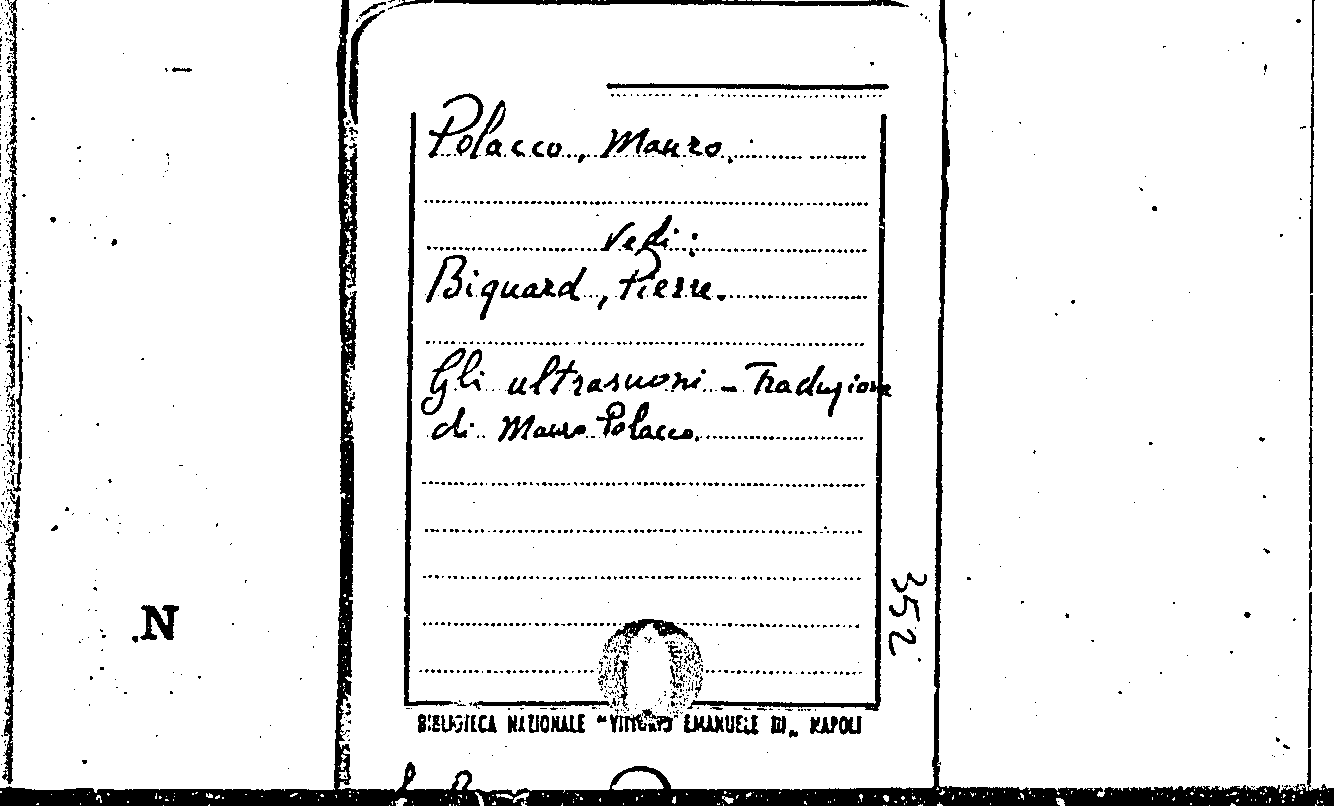 Polacco, Mauro.
Vedi:
Biquard, Pierre.
Gli ultrasuoni - Traduzione
di Mauro Polacco.
352
N
BIBLIOTECA NAZIONALE "VITTORIO EMANUELE III" NAPOLI